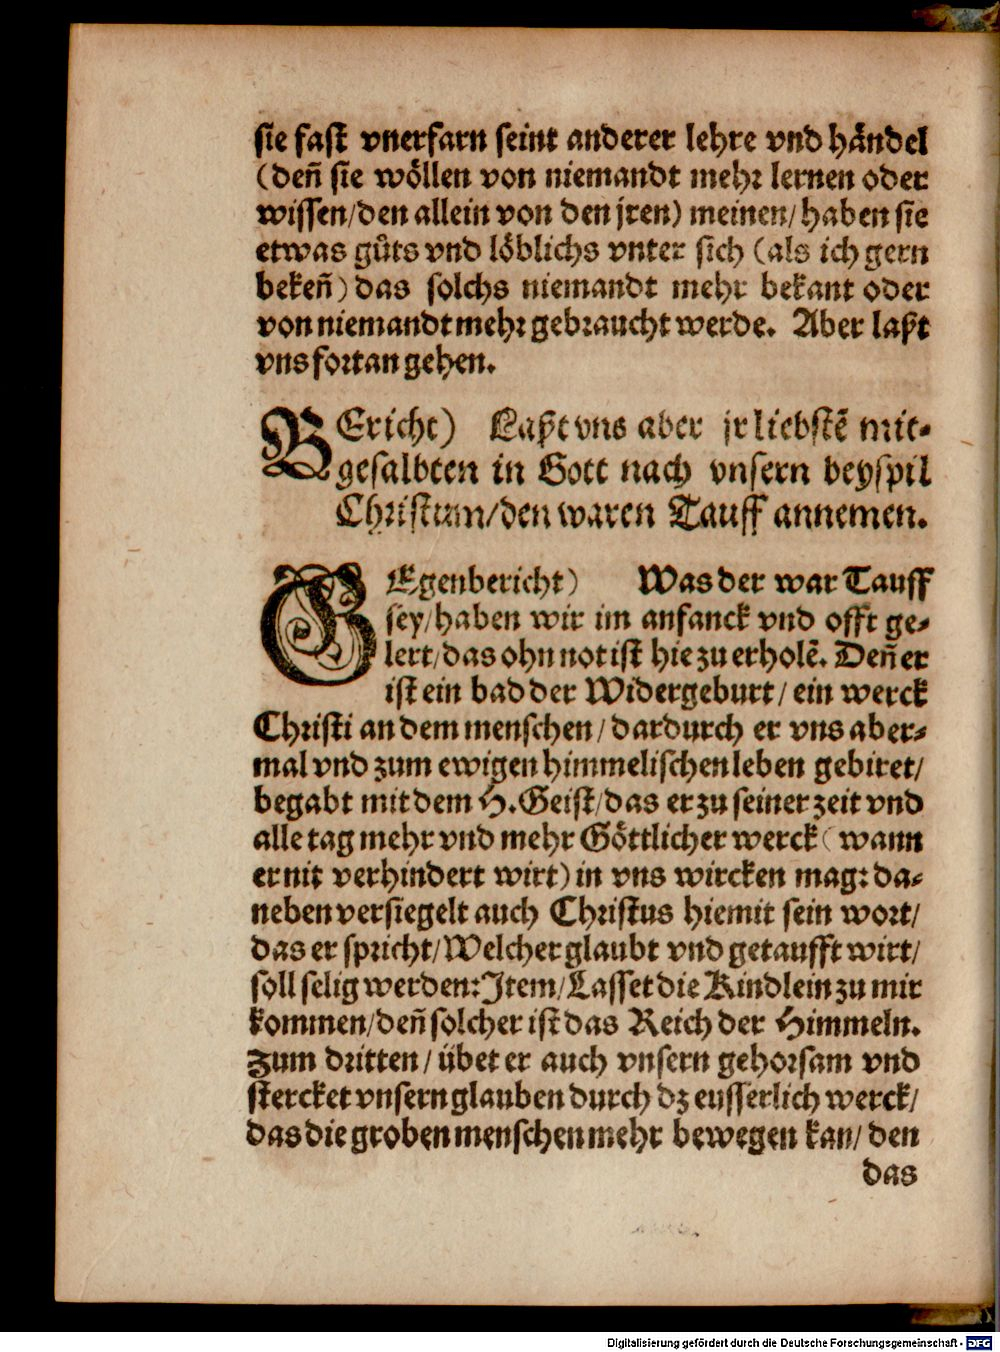 sie fast vnerfarn seint anderer lehre vnd händel
(deñ sie wöllen von niemandt mehr lernen oder
wissen/den allein von den jren) meinen/haben sie
etwas gůts vnd löblichs vnter sich (als ich gern
bekeñ) das solchs niemandt mehr bekant oder
von niemandt mehr gebraucht werde. Aber laßt
vns fortan gehen.
BEricht) Laßt vns aber jr liebstē mit-
gesalbten in Gott nach vnsern beyspil
Christum/den waren Tauff annemen.
GEgenbericht) Was der war Tauff
sey/haben wir im anfanck vnd offt ge-
lert/das ohn not ist hie zu erholē. Deñ er
ist ein bad der Widergeburt/ein werck
Christi an dem menschen/dardurch er vns aber-
mal vnd zum ewigen himmelischen leben gebiret/
begabt mit dem H. Geist/das er zu seiner zeit vnd
alle tag mehr vnd mehr Göttlicher werck (wann
er nit verhindert wirt) in vns wircken mag: da-
neben versiegelt auch Christus hiemit sein wort/
das er spricht/Welcher glaubt vnd getaufft wirt/
soll selig werden: Item/Lasset die Kindlein zu mir
kommen/deñ solcher ist das Reich der Himmeln.
Zum dritten/übet er auch vnsern gehorsam vnd
stercket vnsern glauben durch dz eusserlich werck/
das die groben menschen mehr bewegen kan/den
das
Digitalisierung gefördert durch die Deutsche Forschungsgemeinschaft - DFG